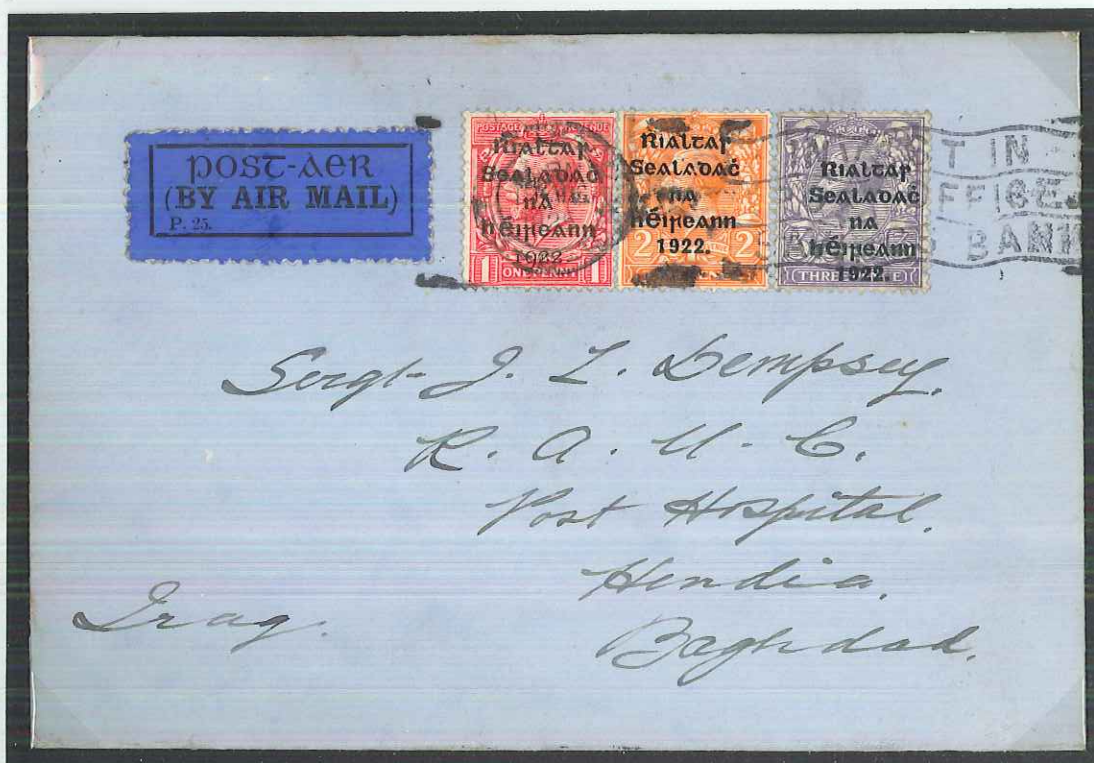 POST-AER
(BY AIR MAIL)
P. 25.
POSTAGE REVENUE
Rialtas
Sealadaċ
na
hÉireann
1922
1 ONE PENNY 1
Rialtas
Sealadaċ
na
hÉireann
1922.
2 2
Rialtas
Sealadaċ
na
hÉireann
1922.
THREE
T IN
FFICE
BANK
Sergt. J. L. Dempsey.
R. A. M. C.
Post Hospital.
Hendia.
Baghdad.
Iraq.